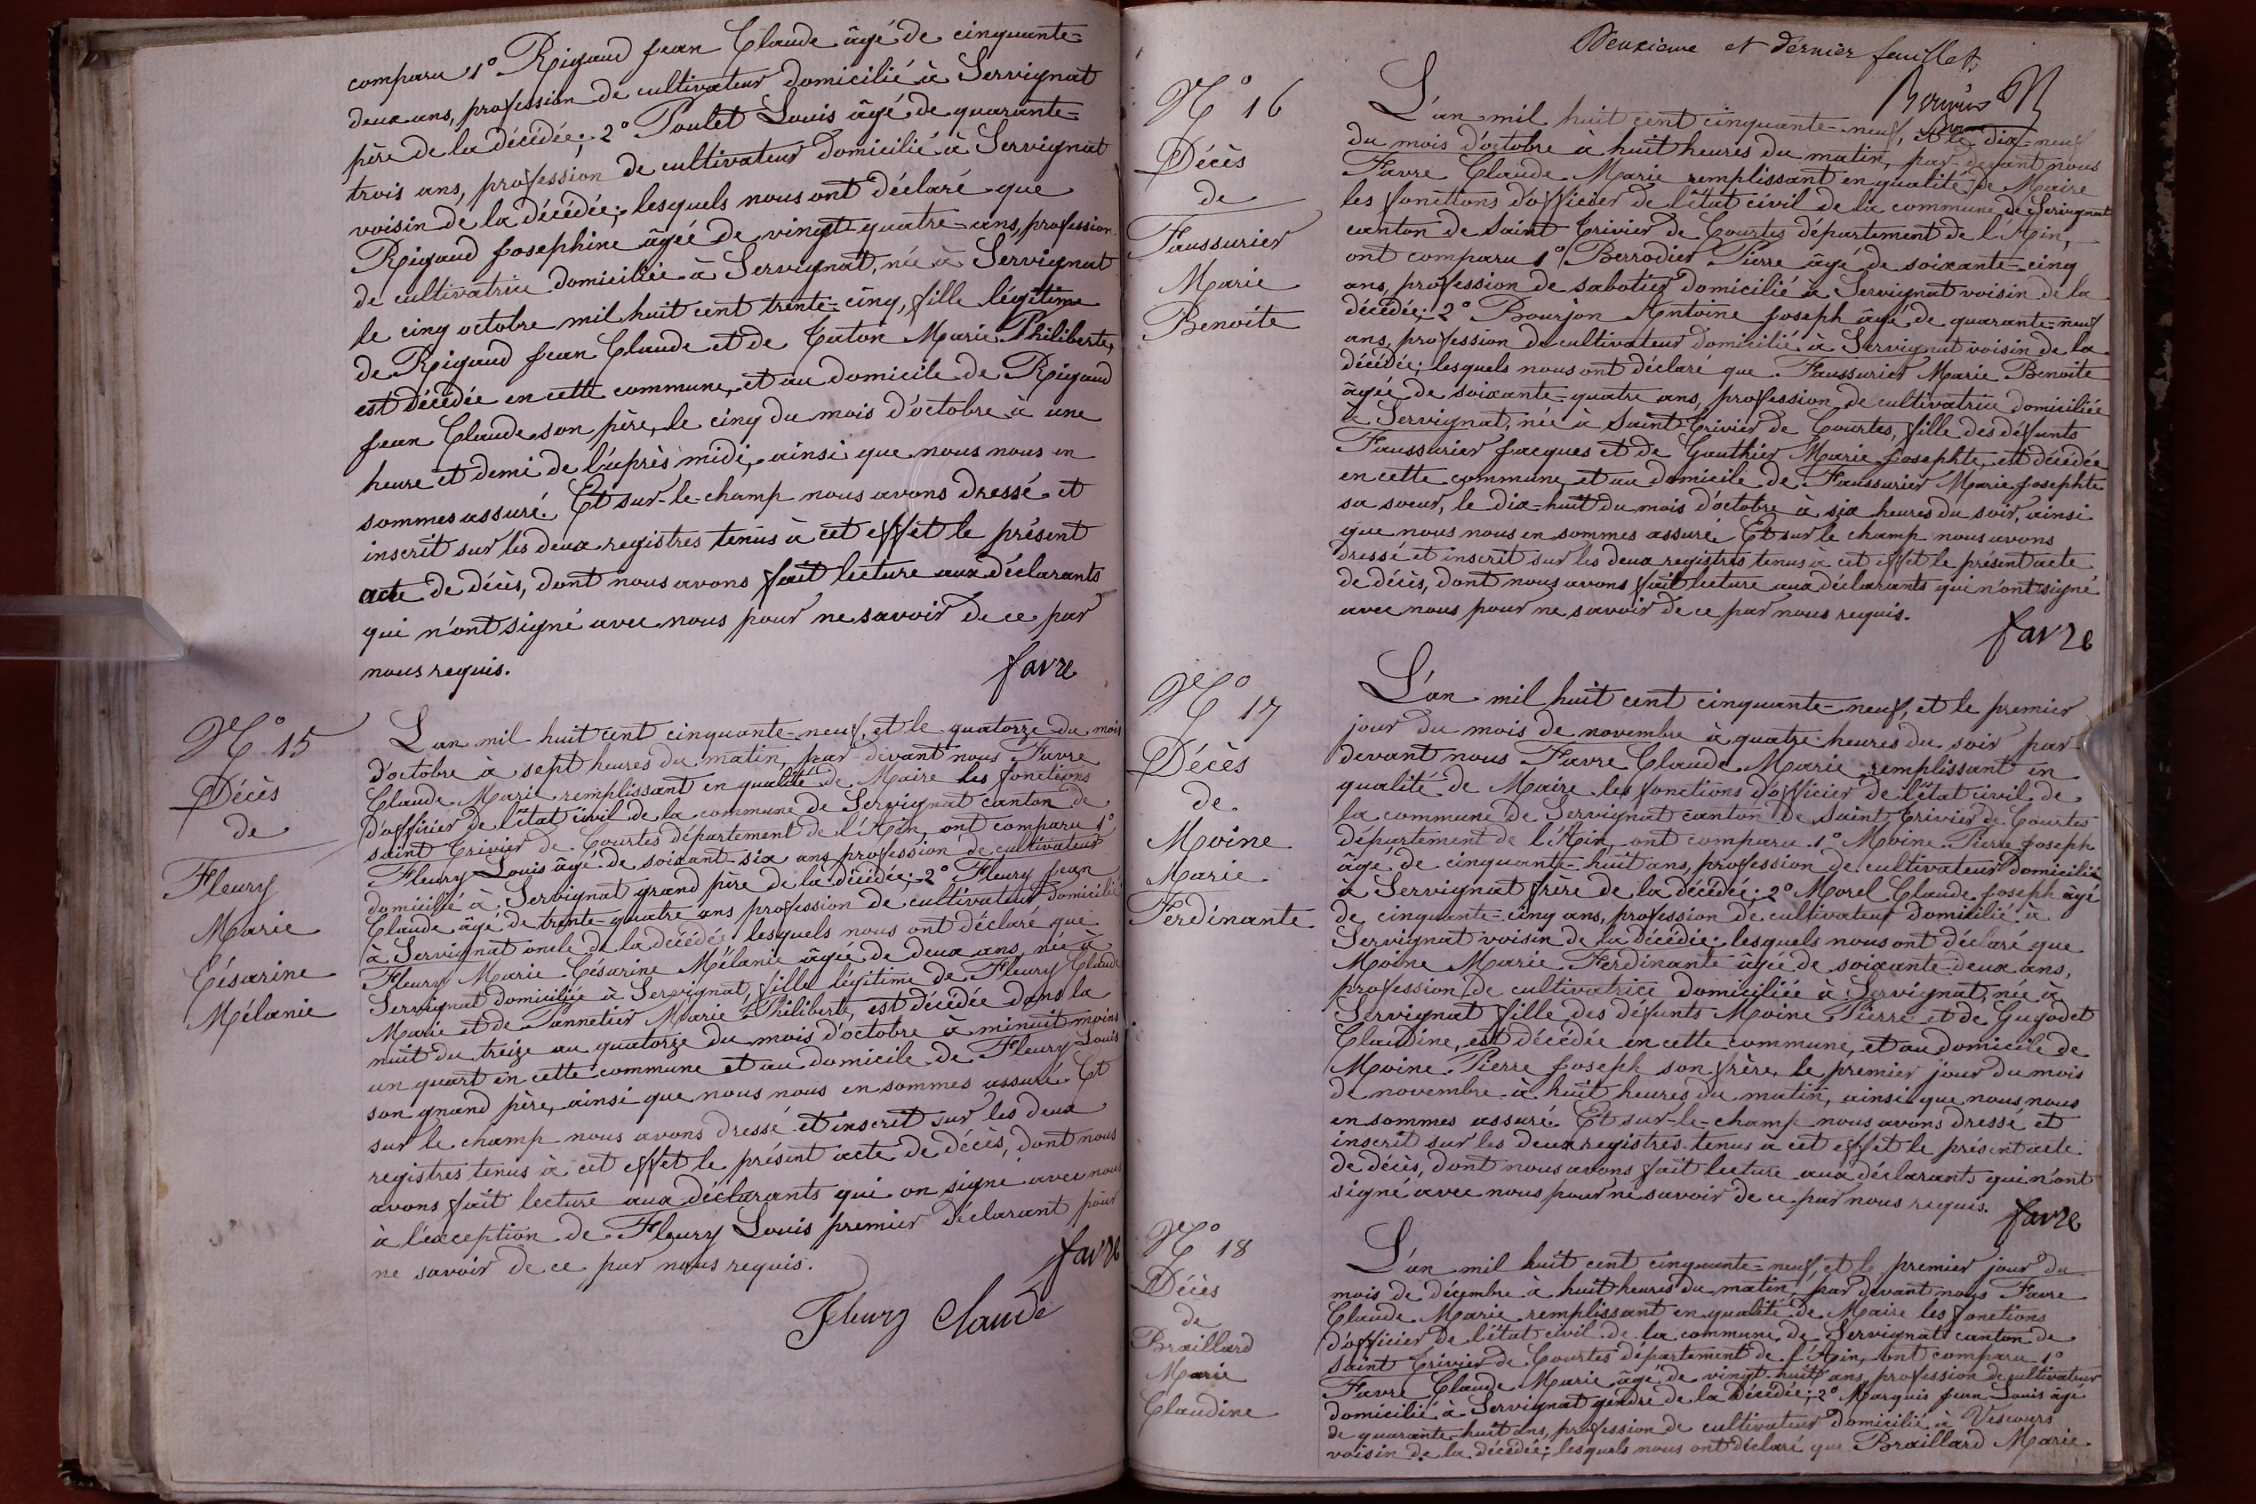 comparu 1° Rigaud Jean Claude âgé de cinquante=
deux ans, profession de cultivateur domicilié à Servignat
père de la décédée; 2° Poulet Louis âgé de quarante=
trois ans, profession de cultivateur domicilié à Servignat
voisin de la décédée; lesquels nous ont déclaré que
Rigaud Josephine âgée de vingt-quatre ans, profession
de cultivatrice domiciliée à Servignat, née à Servignat
le cinq octobre mil huit cent trente-cinq, fille légitime
de Rigaud Jean Claude et de Caton Marie Philiberte,
est décédée en cette commune, et au domicile de Rigaud
Jean Claude son père, le cinq du mois d'octobre à une
heure et demi de l'après midi, ainsi que nous nous en
sommes assuré. Et sur-le-champ nous avons dressé et
inscrit sur les deux registres tenus à cet effet le présent
acte de décès, dont nous avons fait lecture aux déclarants
qui n'ont signé avec nous pour ne savoir de ce par
nous requis.
favre
N° 15
Décès
de
Fleury
Marie
Césarine
Mélanie
L'an mil huit cent cinquante-neuf, et le quatorze du mois
d'octobre à sept heures du matin, par-devant nous Favre
Claude Marie remplissant en qualité de Maire les fonctions
d'officier de l'état civil de la commune de Servignat canton de
saint Trivier de Courtes département de l'Ain, ont comparu 1°
Fleury Louis âgé de soixant-six ans profession de cultivateur
domicilié à Servignat grand père de la décédée; 2° Fleury Jean
Claude âgé de trente-quatre ans profession de cultivateur domicilié
à Servignat oncle de la décédée lesquels nous ont déclaré que
Fleury Marie Césarine Mélanie âgée de deux ans, née à
Servignat domiciliée à Servignat, fille légitime de Fleury Claude
Marie et de Pannetier Marie Philiberte, est décédée dans la
nuit du treize au quatorze du mois d'octobre à minuit moins
un quart en cette commune et au domicile de Fleury Louis
son grand père, ainsi que nous nous en sommes assuré. Et
sur le champ nous avons dressé et inscrit sur les deux
registres tenus à cet effet le présent acte de décès, dont nous
avons fait lecture aux déclarants qui on signé avec nous
à l'exception de Fleury Louis premier déclarant pour
ne savoir de ce par nous requis.
favre
Fleury Claude
Deuxieme et dernier feuillet.
N° 16
Décès
de
Faussurier
Marie
Benoite
L'an mil huit cent cinquante-neuf, et le dix-neuf
du mois d'octobre à huit heures du matin, par-devant nous
Favre Claude Marie remplissant en qualité de Maire
les fonctions d'officier de l'état civil de la commune de Servignat
canton de Saint Trivier de Courtes département de l'Ain,
ont comparu 1° Berrodier Pierre âgé de soixante-cinq
ans, profession de sabotier domicilié à Servignat voisin de la
décédée; 2° Bourjon Antoine Joseph âgé de quarante-neuf
ans, profession de cultivateur domicilié à Servignat voisin de la
décédée; lesquels nous ont déclaré que Faussurier Marie Benoite
âgée de soixante-quatre ans, profession de cultivatrice domiciliée
à Servignat, née à Saint Trivier de Courtes, fille des défunts
Faussurier Jacques et de Gauthier Marie Josephte, est décédée
en cette commune et au domicile de Faussurier Marie Josephte
sa soeur, le dix-huit du mois d'octobre à six heures du soir, ainsi
que nous nous en sommes assuré. Et sur le champ nous avons
dressé et inscrit sur les deux registres tenus à cet effet le présent acte
de décès, dont nous avons fait lecture aux déclarants qui n'ont signé
avec nous pour ne savoir de ce par nous requis.
favre
N° 17
Décès
de
Moine
Marie
Ferdinante
L'an mil huit cent cinquante-neuf, et le premier
jour du mois de novembre à quatre heures du soir par-
devant nous Favre Claude Marie remplissant en
qualité de Maire les fonctions d'officier de l'état civil de
la commune de Servignat canton de Saint Trivier de Courtes
département de l'Ain, ont comparu 1° Moine Pierre Joseph
âgé de cinquante-huit ans, profession de cultivateur domicilié
à Servignat frère de la décédée; 2° Morel Claude Joseph âgé
de cinquante-cinq ans, profession de cultivateur domicilié à
Servignat voisin de la décédée; lesquels nous ont déclaré que
Moine Marie Ferdinante âgée de soixante-deux ans,
profession de cultivatrice domiciliée à Servignat, née à
Servignat fille des défunts Moine Pierre et de Guyodet
Claudine, est décédée en cette commune, et au domicile de
Moine Pierre Joseph son frère, le premier jour du mois
de novembre à huit heures du matin, ainsi que nous nous
en sommes assuré. Et sur-le-champ nous avons dressé et
inscrit sur les deux registres tenus à cet effet le présent acte
de décès, dont nous avons fait lecture aux déclarants qui n'ont
signé avec nous pour ne savoir de ce par nous requis.
favre
N° 18
Décès
de
Braillard
Marie
Claudine
L'an mil huit cent cinquante-neuf, et le premier jour du
mois de décembre à huit heures du matin, par devant nous Favre
Claude Marie remplissant en qualité de Maire les fonctions
d'officier de l'état civil de la commune de Servignat canton de
Saint Trivier de Courtes département de l'Ain, ont comparu 1°
Favre Claude Marie âgé de vingt-huit ans profession de cultivateur
domicilié à Servignat gendre de la décédée; 2° Marquis Jean Louis âgé
de quarante-huit ans, profession de cultivateur domicilié à Vescours
voisin de la décédée; lesquels nous ont déclaré que Braillard Marie